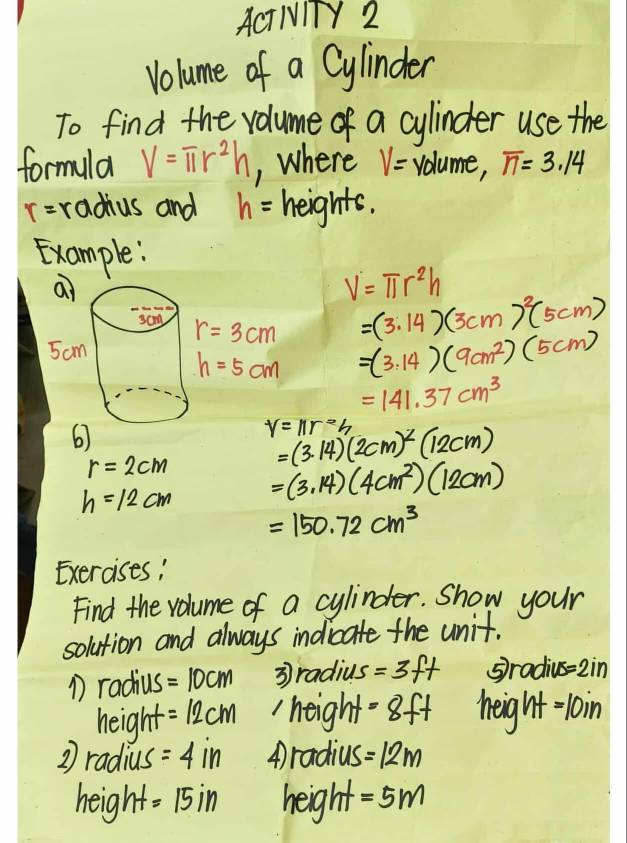 ACTIVITY 2
Volume of a Cylinder
To find the volume of a cylinder use the
formula V = πr²h, where V = volume, π = 3.14
r = radius and h = heights.
Example:
a)
3cm
5cm
r = 3cm
h = 5cm
V = πr²h
=(3.14)(3cm)²(5cm)
=(3.14)(9cm²)(5cm)
= 141.37 cm³
b)
r = 2cm
h = 12 cm
V = πr²h
=(3.14)(2cm)²(12cm)
=(3.14)(4cm²)(12cm)
= 150.72 cm³
Exercises:
Find the volume of a cylinder. Show your
solution and always indicate the unit.
1) radius = 10cm
height = 12cm
2) radius = 4 in
height = 15 in
3) radius = 3 ft
height = 8ft
4) radius = 12m
height = 5m
5) radius = 2in
height = 10in